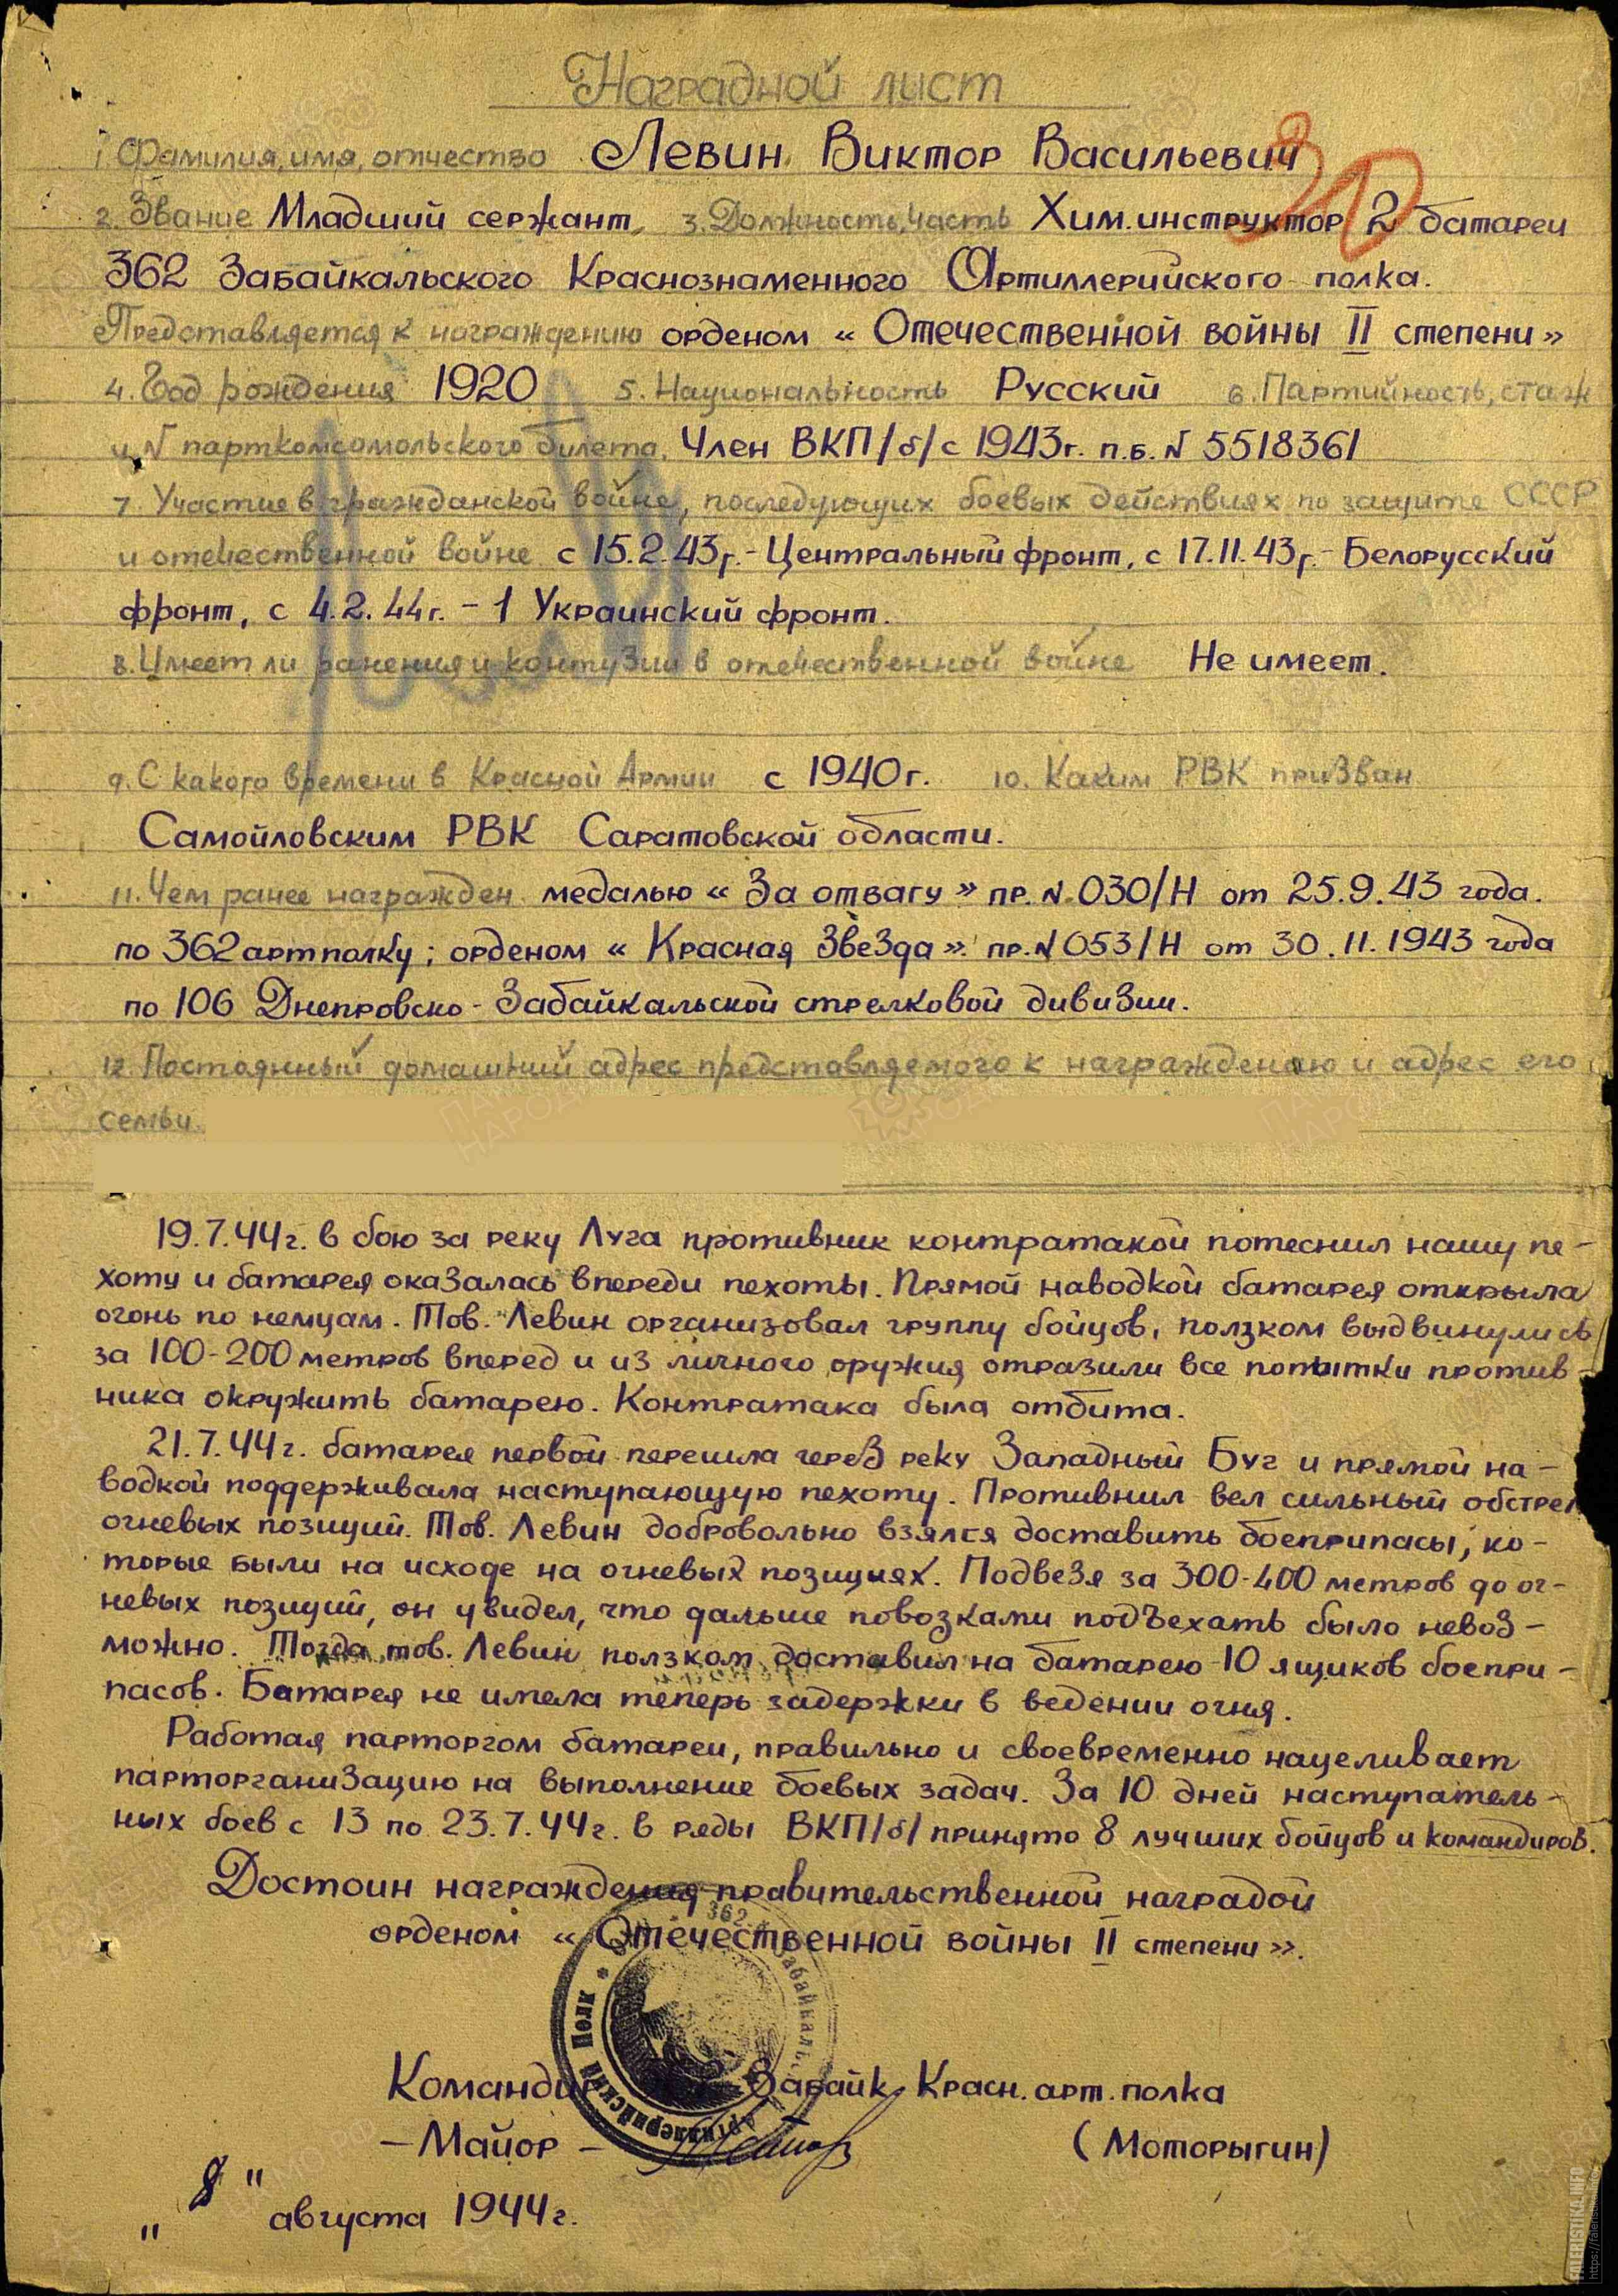 Наградной лист
1. Фамилия, имя, отчество Левин Виктор Васильевич
2. Звание Младший сержант, 3. Должность, часть Хим. инструктор 2 батареи
362 Забайкальского Краснознаменного Артиллерийского полка.
Представляется к награждению орденом « Отечественной войны II степени »
4. Год рождения 1920 5. Национальность Русский 6. Партийность, стаж
и N парткомсомольского билета. Член ВКП/б/ с 1943г. п.б. N 5518361
7. Участие в гражданской войне, последующих боевых действиях по защите СССР
и отечественной войне с 15.2.43г. - Центральный фронт, с 17.11.43г. - Белорусский
фронт, с 4.2.44г. - 1 Украинский фронт.
8. Имеет ли ранения и контузии в отечественной войне Не имеет.
9. С какого времени в Красной Армии с 1940г. 10. Каким РВК призван
Самойловским РВК Саратовской области.
11. Чем ранее награжден медалью « За отвагу » пр. N 030/Н от 25.9.43 года.
по 362 артполку; орденом « Красная Звезда » пр. N 053/Н от 30.11.1943 года
по 106 Днепровско-Забайкальской стрелковой дивизии.
12. Постоянный домашний адрес представляемого к награждению и адрес его
семьи.
19.7.44г. в бою за реку Луга противник контратакой потеснил нашу пе-
хоту и батарея оказалась впереди пехоты. Прямой наводкой батарея открыла
огонь по немцам. Тов. Левин организовал группу бойцов, ползком выдвинулись
за 100-200 метров вперед и из личного оружия отразили все попытки против-
ника окружить батарею. Контратака была отбита.
21.7.44г. батарея первой перешла через реку Западный Буг и прямой на-
водкой поддерживала наступающую пехоту. Противнил вел сильный обстрел
огневых позиций. Тов. Левин добровольно взялся доставить боеприпасы, ко-
торые были на исходе на огневых позициях. Подвезя за 300-400 метров до ог-
невых позиций, он увидел, что дальше повозками подъехать было невоз-
можно. Тогда тов. Левин ползком доставил на батарею 10 ящиков боепри-
пасов. Батарея не имела теперь задержки в ведении огня.
Работая парторгом батареи, правильно и своевременно нацеливает
парторганизацию на выполнение боевых задач. За 10 дней наступатель-
ных боев с 13 по 23.7.44г. в ряды ВКП/б/ принято 8 лучших бойцов и командиров.
Достоин награждения правительственной наградой
орденом « Отечественной войны II степени ».
Командир Забайк. Красн. арт. полка
- Майор - (Моторыгин)
" 8 " августа 1944г.
362 Забайкаль
Артиллерийский Полк
FALERISTIKA.INFO